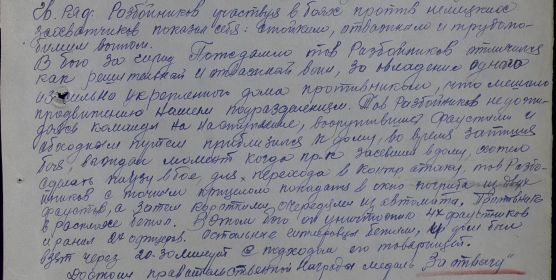 Гв. ряд. Разбойников участвуя в боях против немецких
захватчиков показал себя: стойким, отважным и трудолю-
бивым воином.
В бою за город Потсдамио тов Разбойников отличился
как решительный и отважный воин, за овладение одного
из сильно укрепленного дома противником, что мешало
продвижению нашего подразделения. Тов Разбойников недожи-
даясь команды на наступление, вооружившись фаустами и
обходным путем приблизился к дому, во время затишия
боя, выждал момент когда пр-к засевший в дому, хотел
сделать паузу в бое, для перехода в контр атаку, тов Разбо-
йников с точным прицелом попадать в окно из двух
фаустов, а затем короткими очередями из автомата. Противник
в расплохе бежал. В этом бою он уничтожил 4х фаустников
и ранил 2х офицеров. Остальные гитлеровцы бежали, и дом был
взят через 20-30 минут с подходом его товарищей.
Достоин правительственной награды медаль „За отвагу"